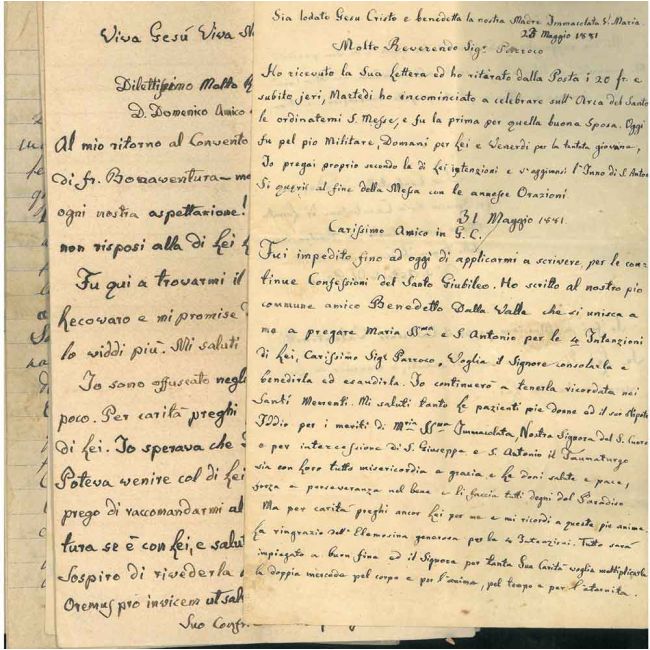 Viva Gesú Viva
Dilettissimo Molto
D. Domenico Amico
Al mio ritorno al Convento
di fr. Bonaventura – me
ogni nostra aspettazione!
non risposi alla di Lei
Fu qui a trovarmi il
Recovaro e mi promise
lo viddi più. Mi saluti
Io sono offuscato negli
poco. Per carità preghi
di Lei. Io sperava che
Poteva venire col di Lei
prego di raccomandarmi al
tura se è con Lei, e salut
Sospiro di rivederla
Oremus pro invicem ut sal
Suo Confr.
Sia lodato Gesu Cristo e benedetta la nostra Madre Immacolata V. Maria.
Maggio 1881
Molto Reverendo Sigr Parroco
Ho ricevuto la Sua Lettera ed ho ritirato dalla Posta i 20 fr. e
subito jeri, Martedi ho incominciato a celebrare sull' Arca del Santo
le ordinatemi S. Messe, e fu la prima per quella buona Sposa. Oggi
fu pel pio Militare, Domani per Lei e Venerdi per la giovane,
Io pregai proprio secondo la di Lei intenzioni e v'aggiunsi l'Inno di S. Antonio
Si quæris al fine della Messa con le annesse Orazioni
31 Maggio 1881.
Carissimo Amico in G.C.
Fui impedito fino ad oggi di applicarmi a scrivere, per le con-
tinue Confessioni del Santo Giubileo. Ho scritto al nostro pio
commune amico Benedetto Dalla Valle che si unisca a
me a pregare Maria SSma e S. Antonio per le 4 Intenzioni
di Lei, Carissimo Sigr Parroco, Voglia il Signore consolarla e
benedirla ed esaudirla. Io continuerò a tenerla ricordata nei
Santi Mementi. Mi saluti tanto le pazienti pie donne ed il suo Nipote
Iddio per i meriti di Mria SSma Immacolata, Nostra Signora del S. Cuore
e per intercessione di S. Giuseppe e S. Antonio il Taumaturgo
sia con Loro tutto misericordia e grazia e Le doni salute e pace,
forza e perseveranza nel bene e li faccia tutti degni del Paradiso
Ma per carità preghi ancor Lei per me e mi ricordi a queste pie anime.
La ringrazio dell' Elemosina generosa per le 4 Intenzioni. Tutto sarà
impiegato a buon fine ed il Signore per tanta Sua Carità voglia moltiplicarle
la doppia mercede pel corpo e per l'anima, pel tempo e per l'eternità.